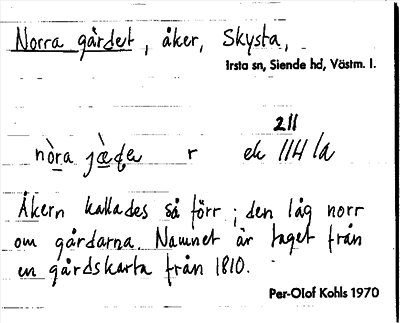 Norra gärdet, åker, Skysta,
Irsta sn, Siende hd, Västm. l.
211
nòra jæ̀ḍa r ek 11H 1a
Åkern kallades så förr; den låg norr
om gårdarna. Namnet är taget från
en gårdskarta från 1810.
Per-Olof Kohls 1970